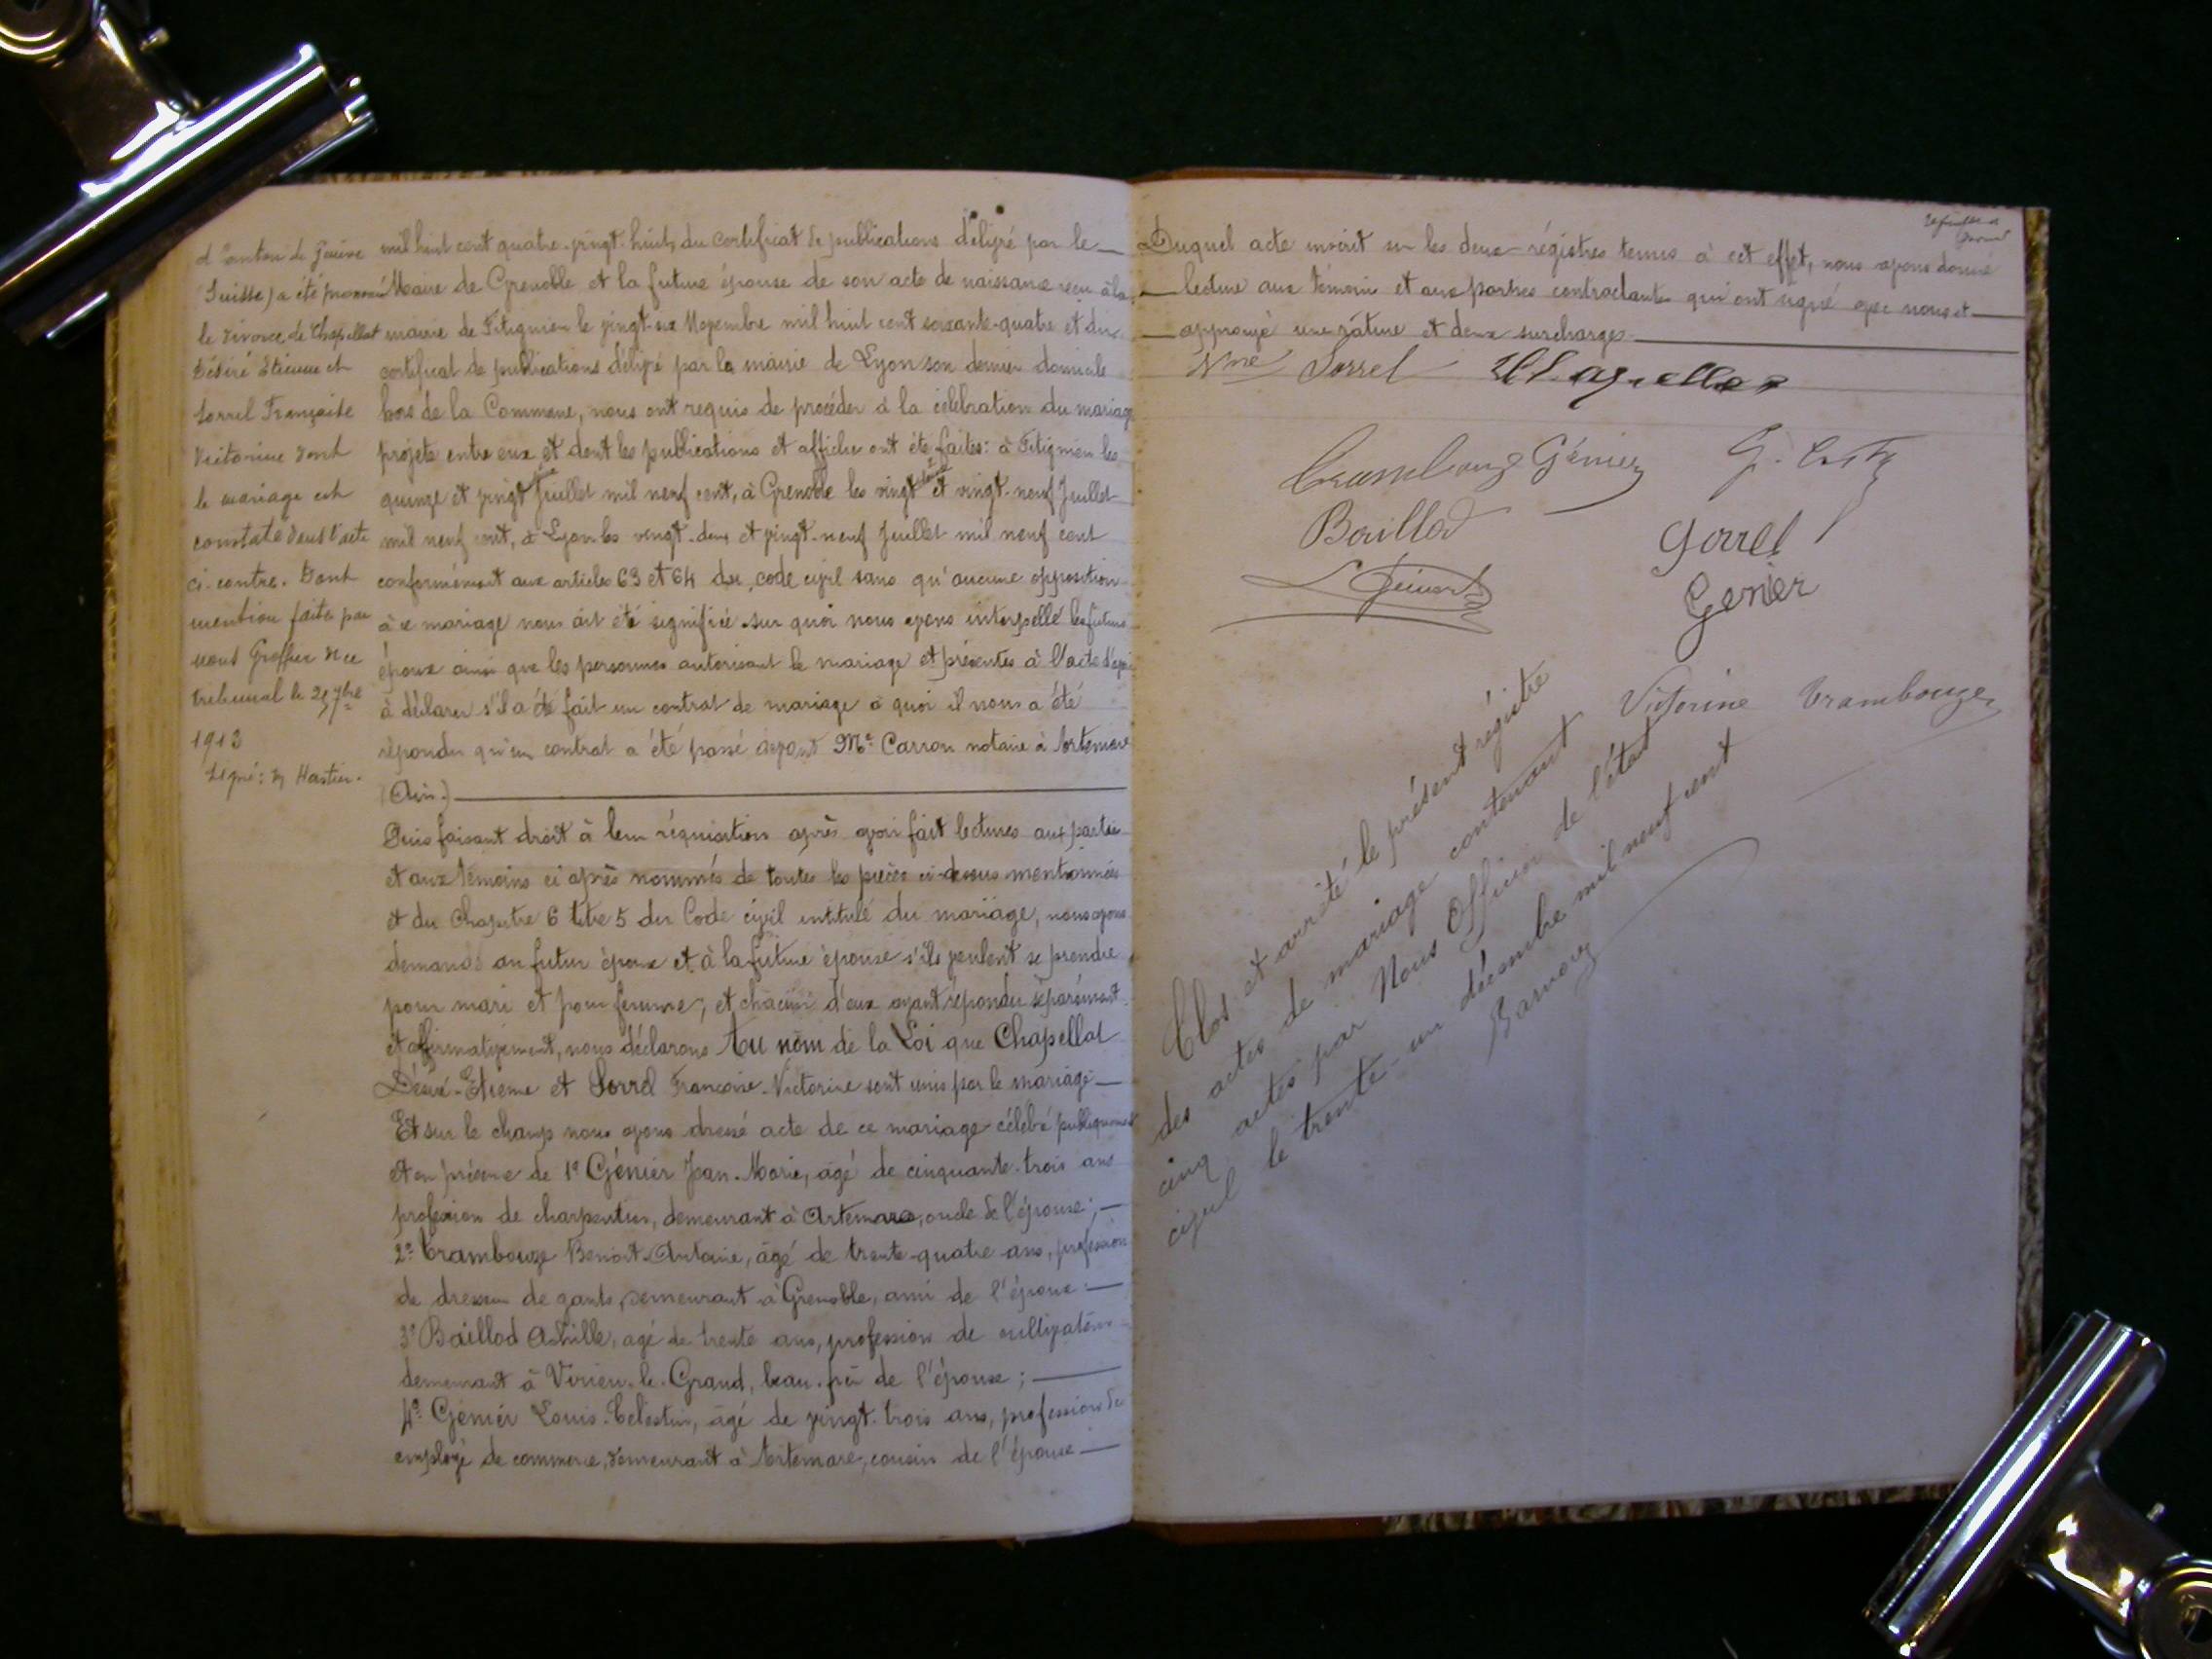 d canton de Genève
Suisse) a été prononcé
le divorce de Chapellat
Désiré Etienne et
Sorrel Françoise
Victorine dont
le mariage est
constaté dans l'acte
ci-contre. Dont
mention faite par
nous Greffier de ce
tribunal le 25 7bre
1913
Signé: Hastier.
mil huit cent quatre-vingt-huit, du certificat de publications délivré par le
Maire de Grenoble et la future épouse de son acte de naissance reçu à la
mairie de Fitignieu le vingt-six Novembre mil huit cent soixante-quatre et du
certificat de publications délivré par la mairie de Lyon son dernier domicile
hors de la Commune, nous ont requis de procéder à la célébration du mariage
projeté entre eux et dont les publications et affiches ont été faites: à Fitignieu les
quinze et vingt Juillet mil neuf cent, à Grenoble les vingt et vingt-neuf Juillet
mil neuf cent, à Lyon les vingt-deux et vingt-neuf Juillet mil neuf cent
conformément aux articles 63 et 64 du code civil sans qu'aucune opposition
à ce mariage nous ait été signifiée sur quoi nous avons interpellé les futurs
époux ainsi que les personnes autorisant le mariage et présentes à l'acte
à déclarer s'il a été fait un contrat de mariage à quoi il nous a été
répondu qu'un contrat a été passé devant Me Carron notaire à Artemare
(Ain.)
Puis faisant droit à leur réquisition après avoir fait lectures aux parties
et aux témoins ci après nommés de toutes les pièces ci-dessus mentionnées
et du Chapitre 6 titre 5 du Code civil intitulé du mariage, nous avons
demandé au futur époux et à la future épouse s'ils veulent se prendre
pour mari et pour femme, et chacun d'eux ayant répondu séparément
et affirmativement, nous déclarons Au nom de la Loi que Chapellat
Désiré-Etienne et Sorrel Françoise-Victorine sont unis par le mariage
Et sur le champ nous avons dressé acte de ce mariage célébré publiquement
et en présence de 1° Génier Jean-Marie, âgé de cinquante-trois ans
profession de charpentier, demeurant à Artemare, oncle de l'épouse;
2° Trambouze Benoit-Antoine, âgé de trente-quatre ans, profession
de dresseur de gants, demeurant à Grenoble, ami de l'époux
3° Baillod Achille, agé de trente ans, profession de cultivateur
demeurant à Virieu-le-Grand, beau-frère de l'épouse;
4° Génier Louis-Celestin, âgé de vingt-trois ans, profession de
employé de commerce, demeurant à Artemare, cousin de l'épouse
Duquel acte inscrit sur les deux régistres tenus à cet effet, nous avons donné
lecture aux témoins et aux parties contractantes qui ont signé avec nous et
approuvé une râture et deux surcharges.
Vme Sorrel Chapellat
Trambouze Génier
Baillod Sorrel
Génier
Victorine Trambouze
Clos et arrêté le présent régistre
des actes de mariage contenant
cinq actes par Nous Officier de l'état
civil le trente-un décembre mil neuf cent